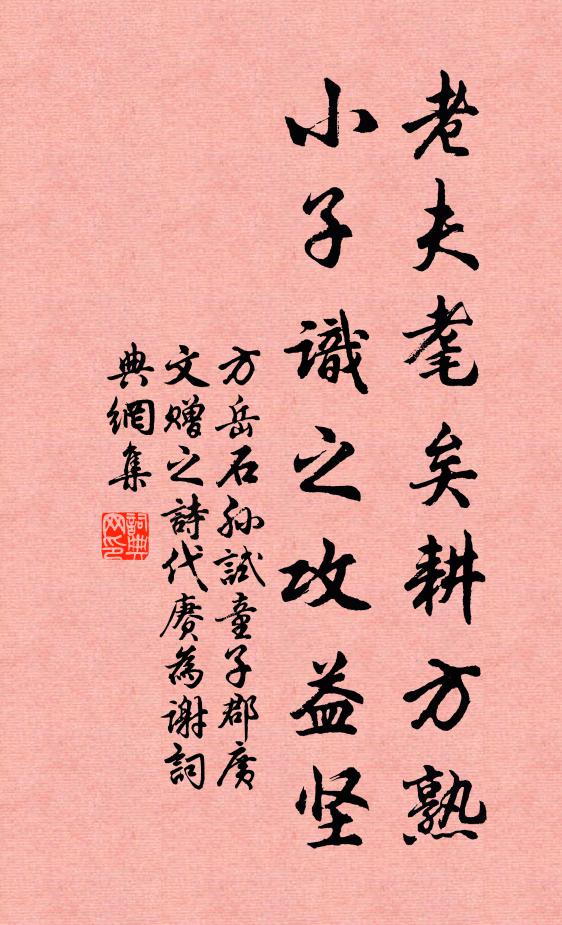 老夫耄矣耕方熟
小子識之攻益坚
方岳石孙試童子郡廣
文赠之詩代赓為谢詞
典網集
詞典网印